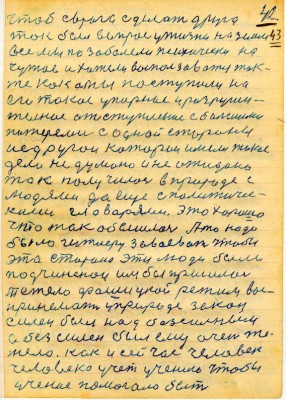 42
43
чтоб с врага сделать друга
так был вопрос у жизни на земли
все им по заболели психически на
чужое и хотели воспользоватся так-
же как они поступили на
его такое упорное и разруши-
тельное отступление с большими
потерями с одной стороны
и с другой которой имели такое
дело не думано и не ожидано
так получился в природе с
людями да еще с политиче-
скими главарями. Это хорошо
что так обошлося А то надо
было гитлеру завоевать чтобы
эта сторона эти люди были
подчиненои им бы пришлося
тяжело фашицкой режим вос-
принемать у природе закон
силен был над безсильным
а безсилен был ему очен тя-
жело. как и сейчас человек
человека учет учением чтобы
учение помогало быть